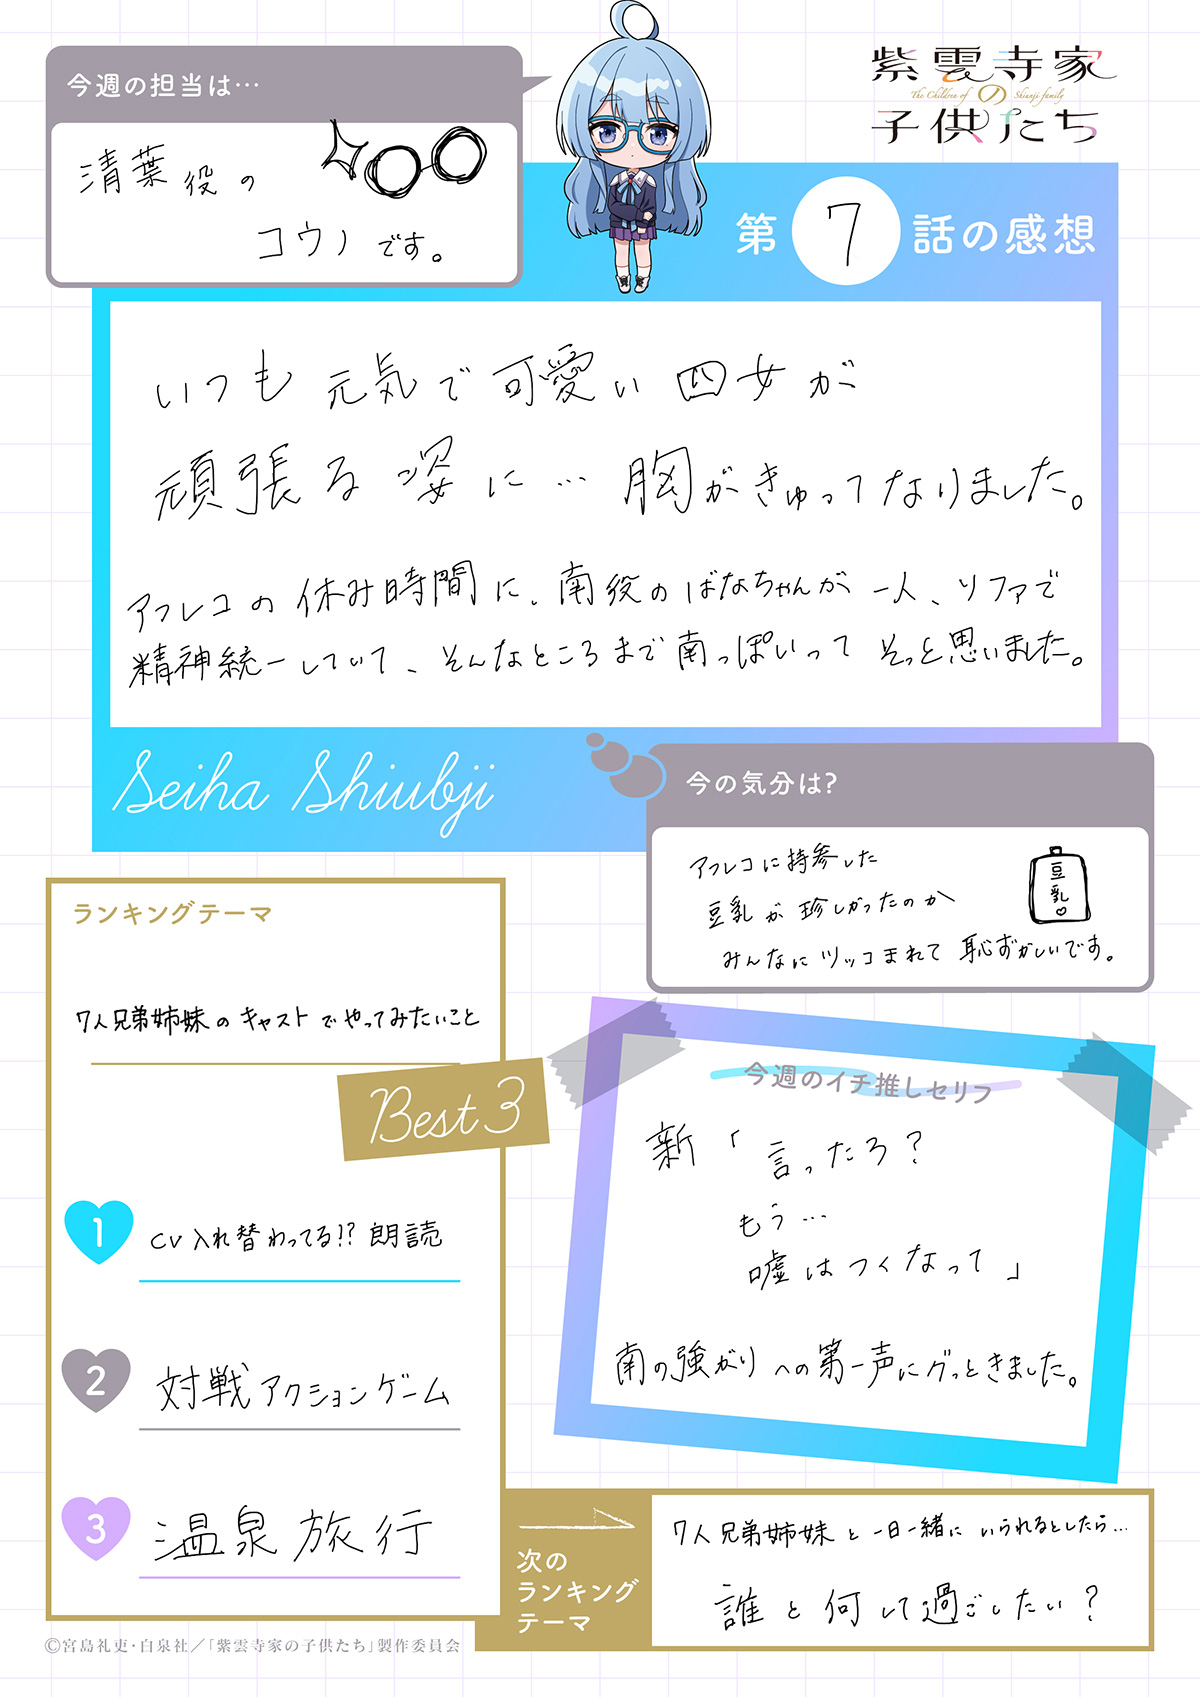 今週の担当は…
清葉役の
コウノです。
紫雲寺家の
The Children of Shiunji family
子供たち
第7話の感想
いつも元気で可愛い四女が
頑張る姿に…胸がきゅってなりました。
アフレコの休み時間に、南役のばなちゃんが一人、ソファで
精神統一していて、そんなところまで南っぽいってそっと思いました。
Seiha Shiubji
今の気分は?
アフレコに持参した
豆乳が珍しかったのか
みんなにツッコまれて恥ずかしいです。
豆乳♡
ランキングテーマ
7人兄弟姉妹のキャストでやってみたいこと
Best 3
1 CV入れ替わってる!?朗読
2 対戦アクションゲーム
3 温泉旅行
今週のイチ推しセリフ
新「言ったろ?
もう…
嘘はつくなって」
南の強がりへの第一声にグッときました。
次の
ランキング
テーマ
7人兄弟姉妹と一日一緒にいられるとしたら…
誰と何して過ごしたい?
©宮島礼吏・白泉社/「紫雲寺家の子供たち」製作委員会